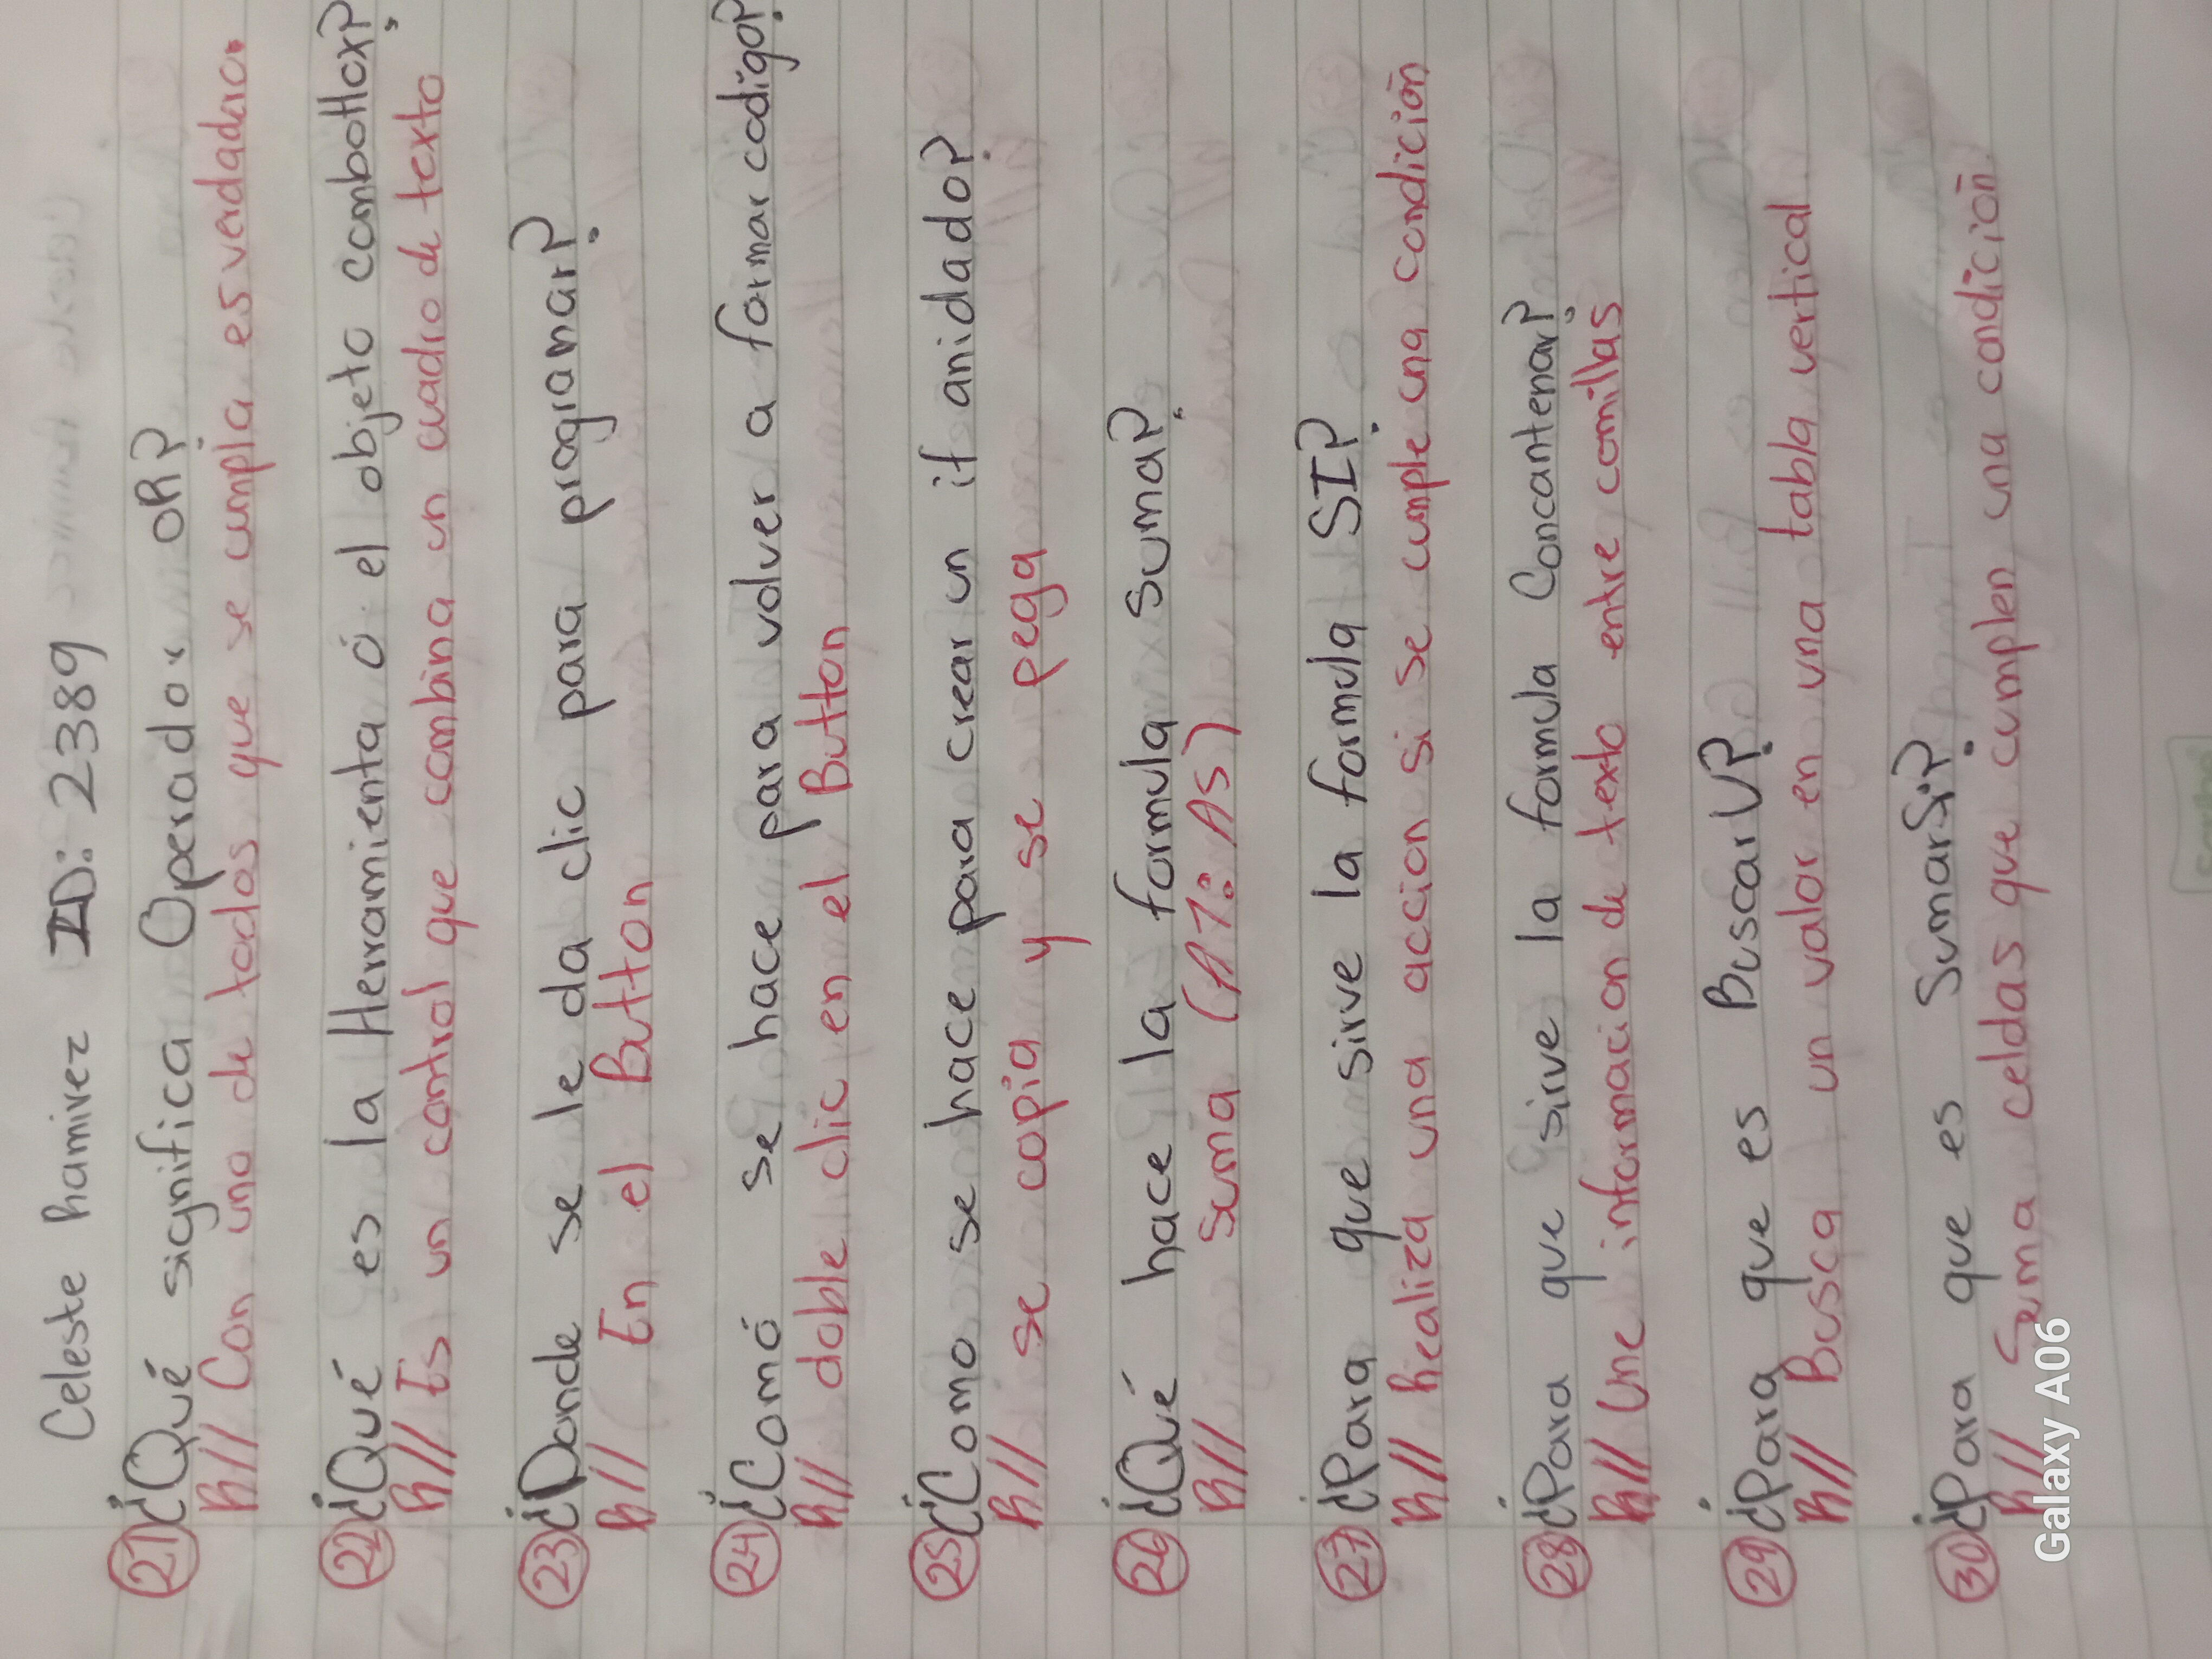 Celeste Ramirez ID: 2389
21 ¿Qué significa Operador OR?
R// Con uno de todos que se cumpla es verdadero.
22 ¿Qué es la Herramienta ó el objeto comboHox?
R// Es un control que combina un cuadro de texto
23 ¿Donde se le da clic para programar?
R// En el Button
24 ¿Comó se hace para volver a formar codigo?
R// doble clic en el Button
25 ¿Como se hace para crear un if anidado?
R// se copia y se pega
26 ¿Qué hace la formula Suma?
R// Suma (A1:A5)
27 ¿Para que sirve la formula SI?
R// Realiza una accion si se cumple una condición
28 ¿Para que sirve la formula Concantenar?
R// Une informacion de texto entre comillas
29 ¿Para que es BuscarV?
R// Busca un valor en una tabla vertical
30 ¿Para que es SumarSi?
R// Suma celdas que cumplen una condición
Galaxy A06